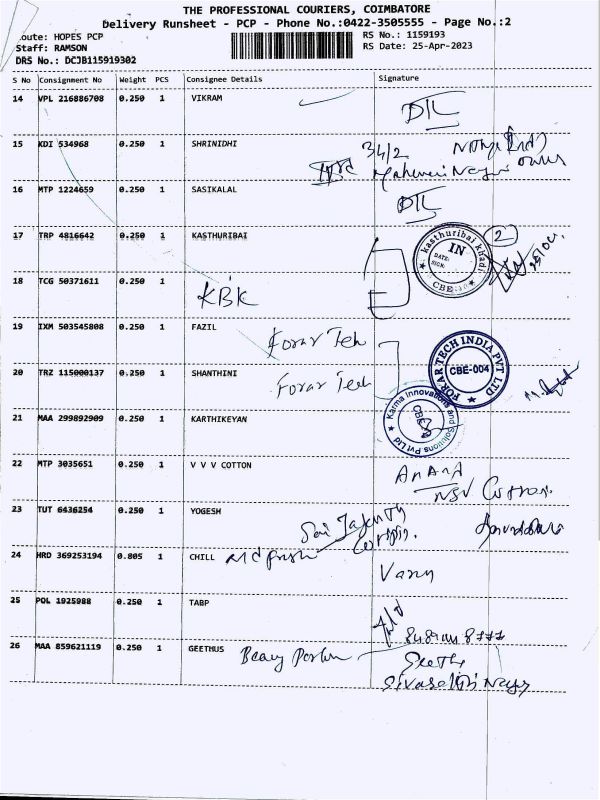 THE PROFESSIONAL COURIERS, COIMBATORE
Delivery Runsheet - PCP - Phone No.:0422-3505555 - Page No.:2
Route: HOPES PCP
Staff: RAMSON
DRS No.: DCJB115919302
RS No.: 1159193
RS Date: 25-Apr-2023
S No Consignment No Weight PCS Consignee Details Signature
14 VPL 216886708 0.250 1 VIKRAM
15 KDI 534968 0.250 1 SHRINIDHI
34/2
owner
16 MTP 1224659 0.250 1 SASIKALAL
17 TRP 4816642 0.250 1 KASTHURIBAI
kasthuribai khadi
IN
DATE:
SIGN:
CBE
2
18 TCG 50371611 0.250 1
KBK
19 IXM 503545808 0.250 1 FAZIL
Forar Tech
20 TRZ 115000137 0.250 1 SHANTHINI
Forar Tech
FORAR TECH INDIA PVT LTD
CBE-004
21 MAA 299892909 0.250 1 KARTHIKEYAN
Karma Innovations and Solutions Pvt Ltd
CBE
22 MTP 3035651 0.250 1 V V V COTTON
Anand
Cotton
23 TUT 6436254 0.250 1 YOGESH
Sai
24 HRD 369253194 0.805 1 CHILL
Varun
25 POL 1925988 0.250 1 TABP
26 MAA 859621119 0.250 1 GEETHUS
Geetha